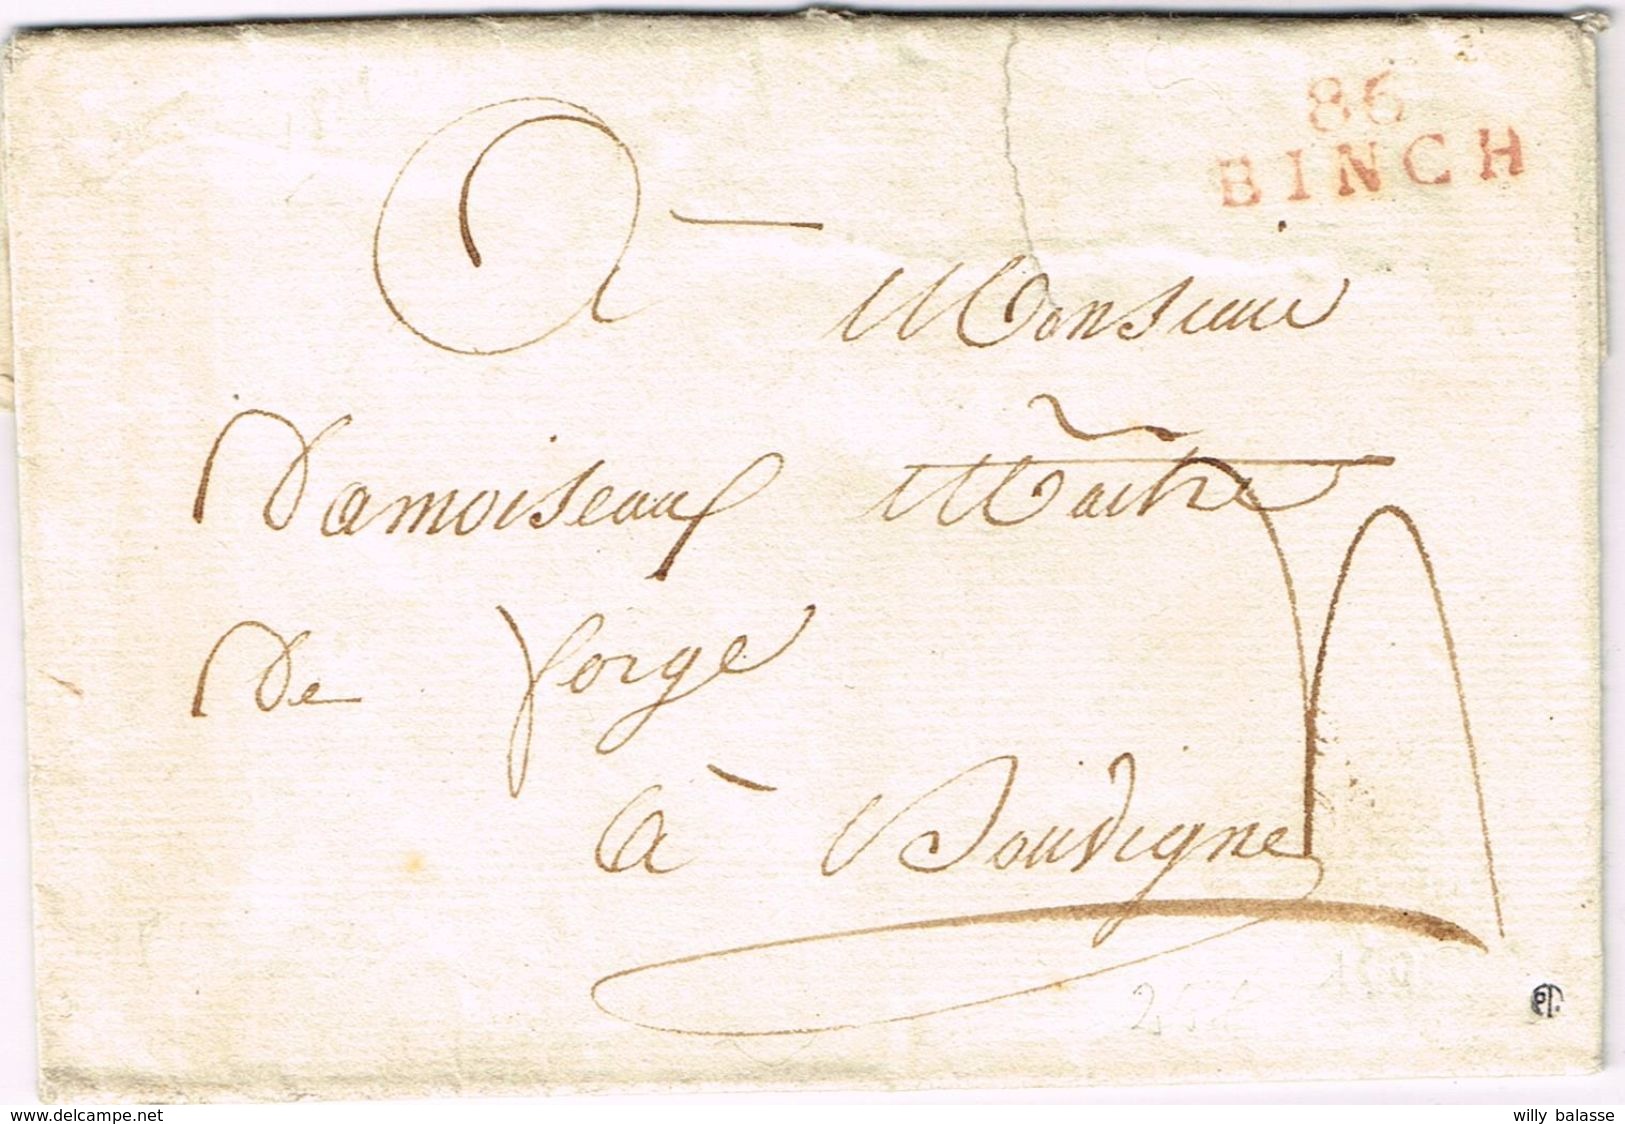 86
BINCH
A Monsieur
Damoiseaux Maitre
De forge
à Bouvigne
www.delcampe.net
willy balasse